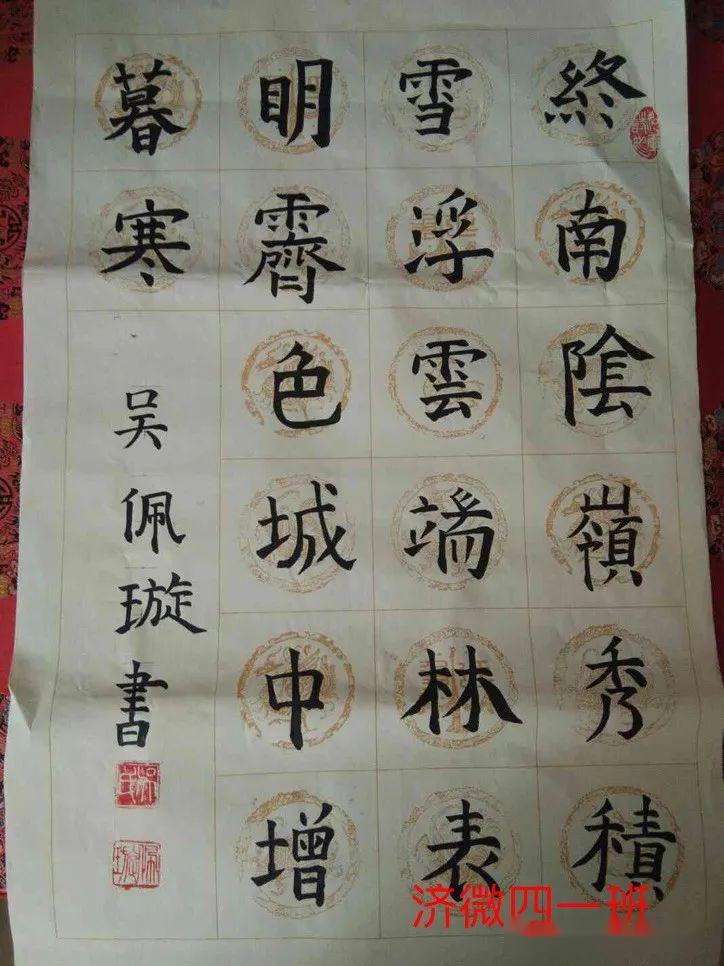 終南陰嶺秀積
雪浮雲端林表
明霽色城中增
暮寒
吴佩璇書
济微四一班